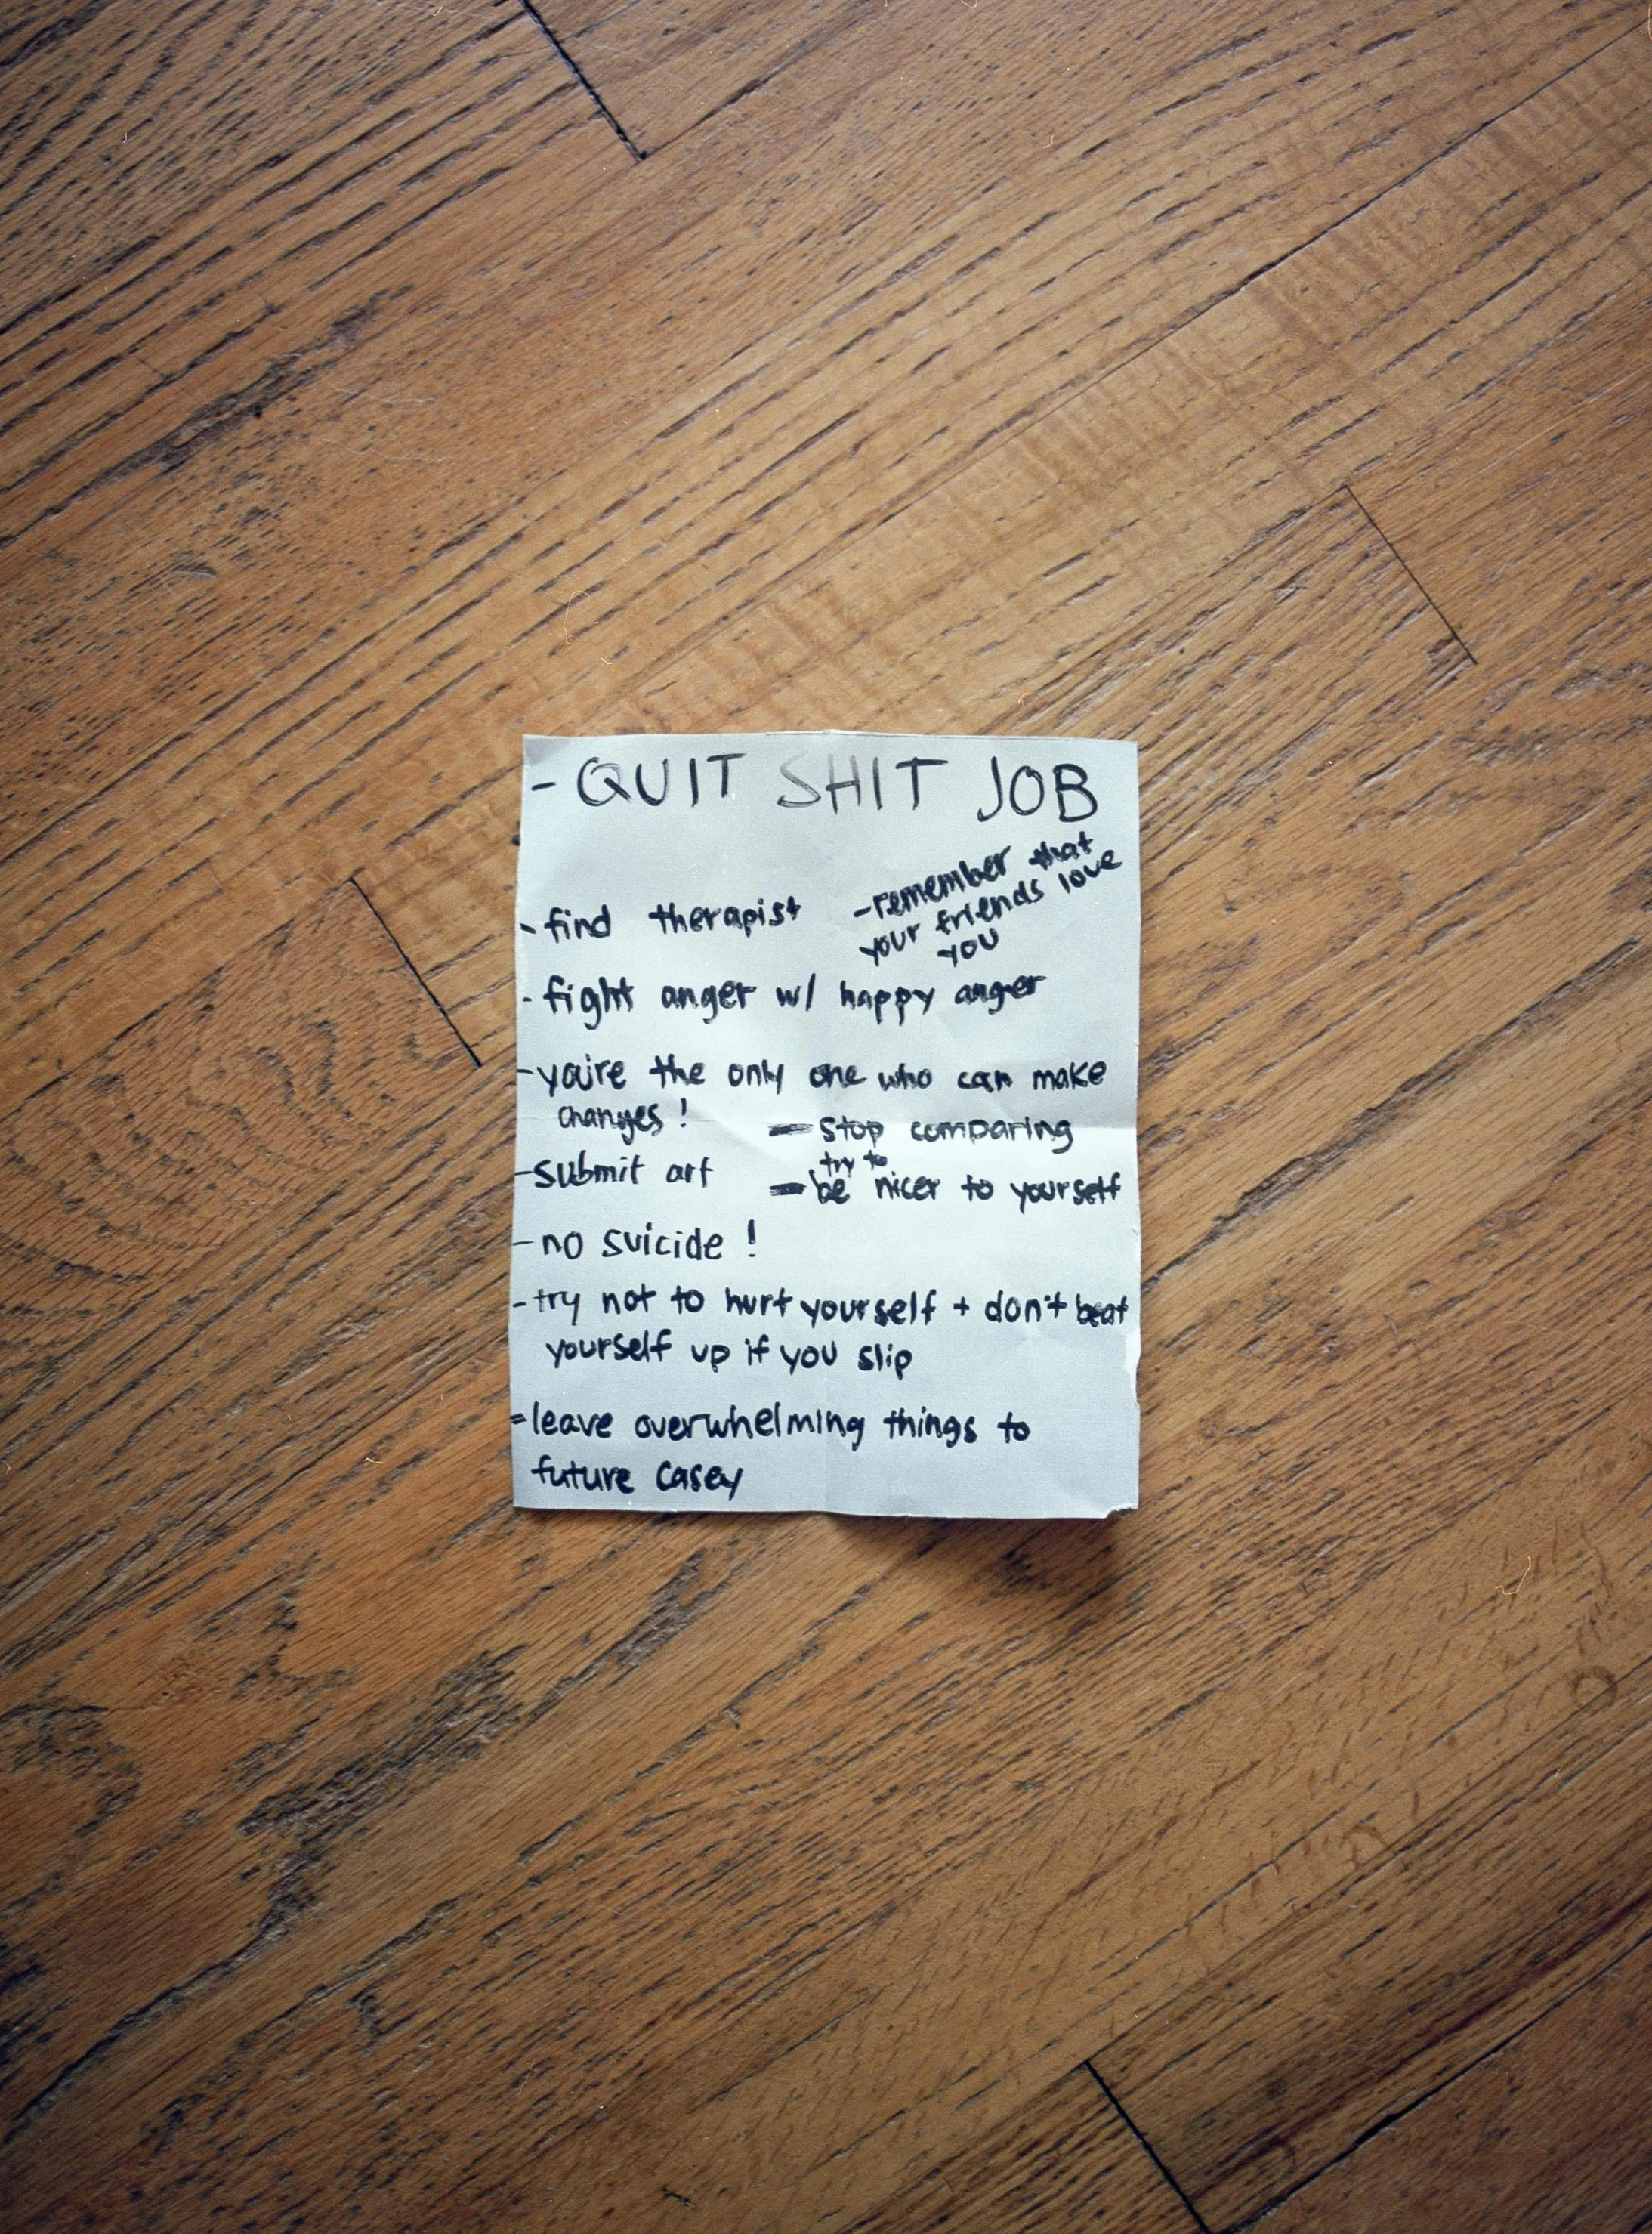 - QUIT SHIT JOB
- find therapist
- remember that
your friends love
you
- fight anger w/ happy anger
- you're the only one who can make
changes!
- stop comparing
- submit art
- try to
be nicer to yourself
- no suicide!
- try not to hurt yourself + don't beat
yourself up if you slip
- leave overwhelming things to
future casey